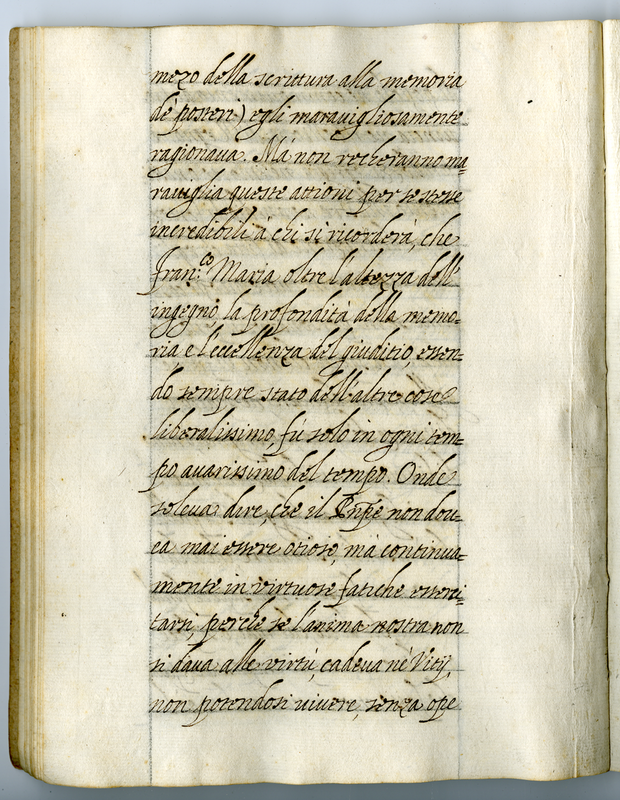 mezo della scrittura alla memoria
de' posteri) egli maravigliosamente
ragionava. Mà non recheranno ma=
raviglia queste attioni per se stesse
incredibili à chi si ricorderà, che
Fran.co Maria oltre l'altezza dell'
ingegno, la profondità della memo=
ria, e l'eccellenza del giuditio, essen=
do sempre stato dell'altre cose
liberalissimo fù solo in ogni tem=
po avarissimo del tempo. Onde
soleva dire, che il Pnpe non dou=
ea mai essere otioso, mà continua=
mente in virtuose fatiche esserci=
tarsi, perche se l'anima nostra non
si dava alle virtù, cadeva nè Vitij,
non potendosi vivere, senza ope